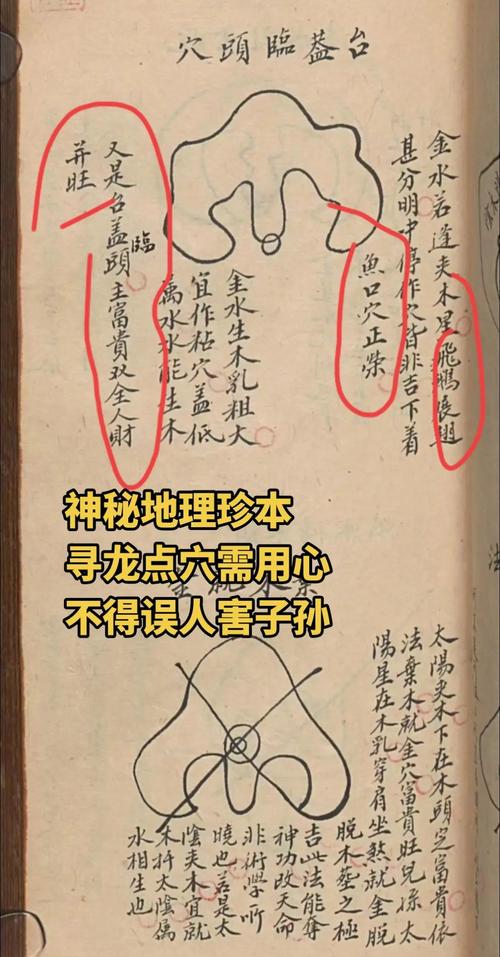 台蓋臨頭穴
金水若逢夾木星飛鵝展翅
甚分明中停作穴皆非吉下着
魚口穴正榮
金水生木乳粗大
宜作粘穴蓋低
屬水水能生木
又是台蓋臨頭主富貴双全人財
并旺
神秘地理珍本
寻龙点穴需用心
不得误人害子孙
太陽夾木下在木頭定富貴依
法棄木就金穴富貴旺兒孫太
陽星在木乳穿肩坐煞就金脱
脱木塟之極
吉此法能奪
神功改天命
非術學所
曉也若是太
陰夾木宜就
木扦太陰屬
水相生也